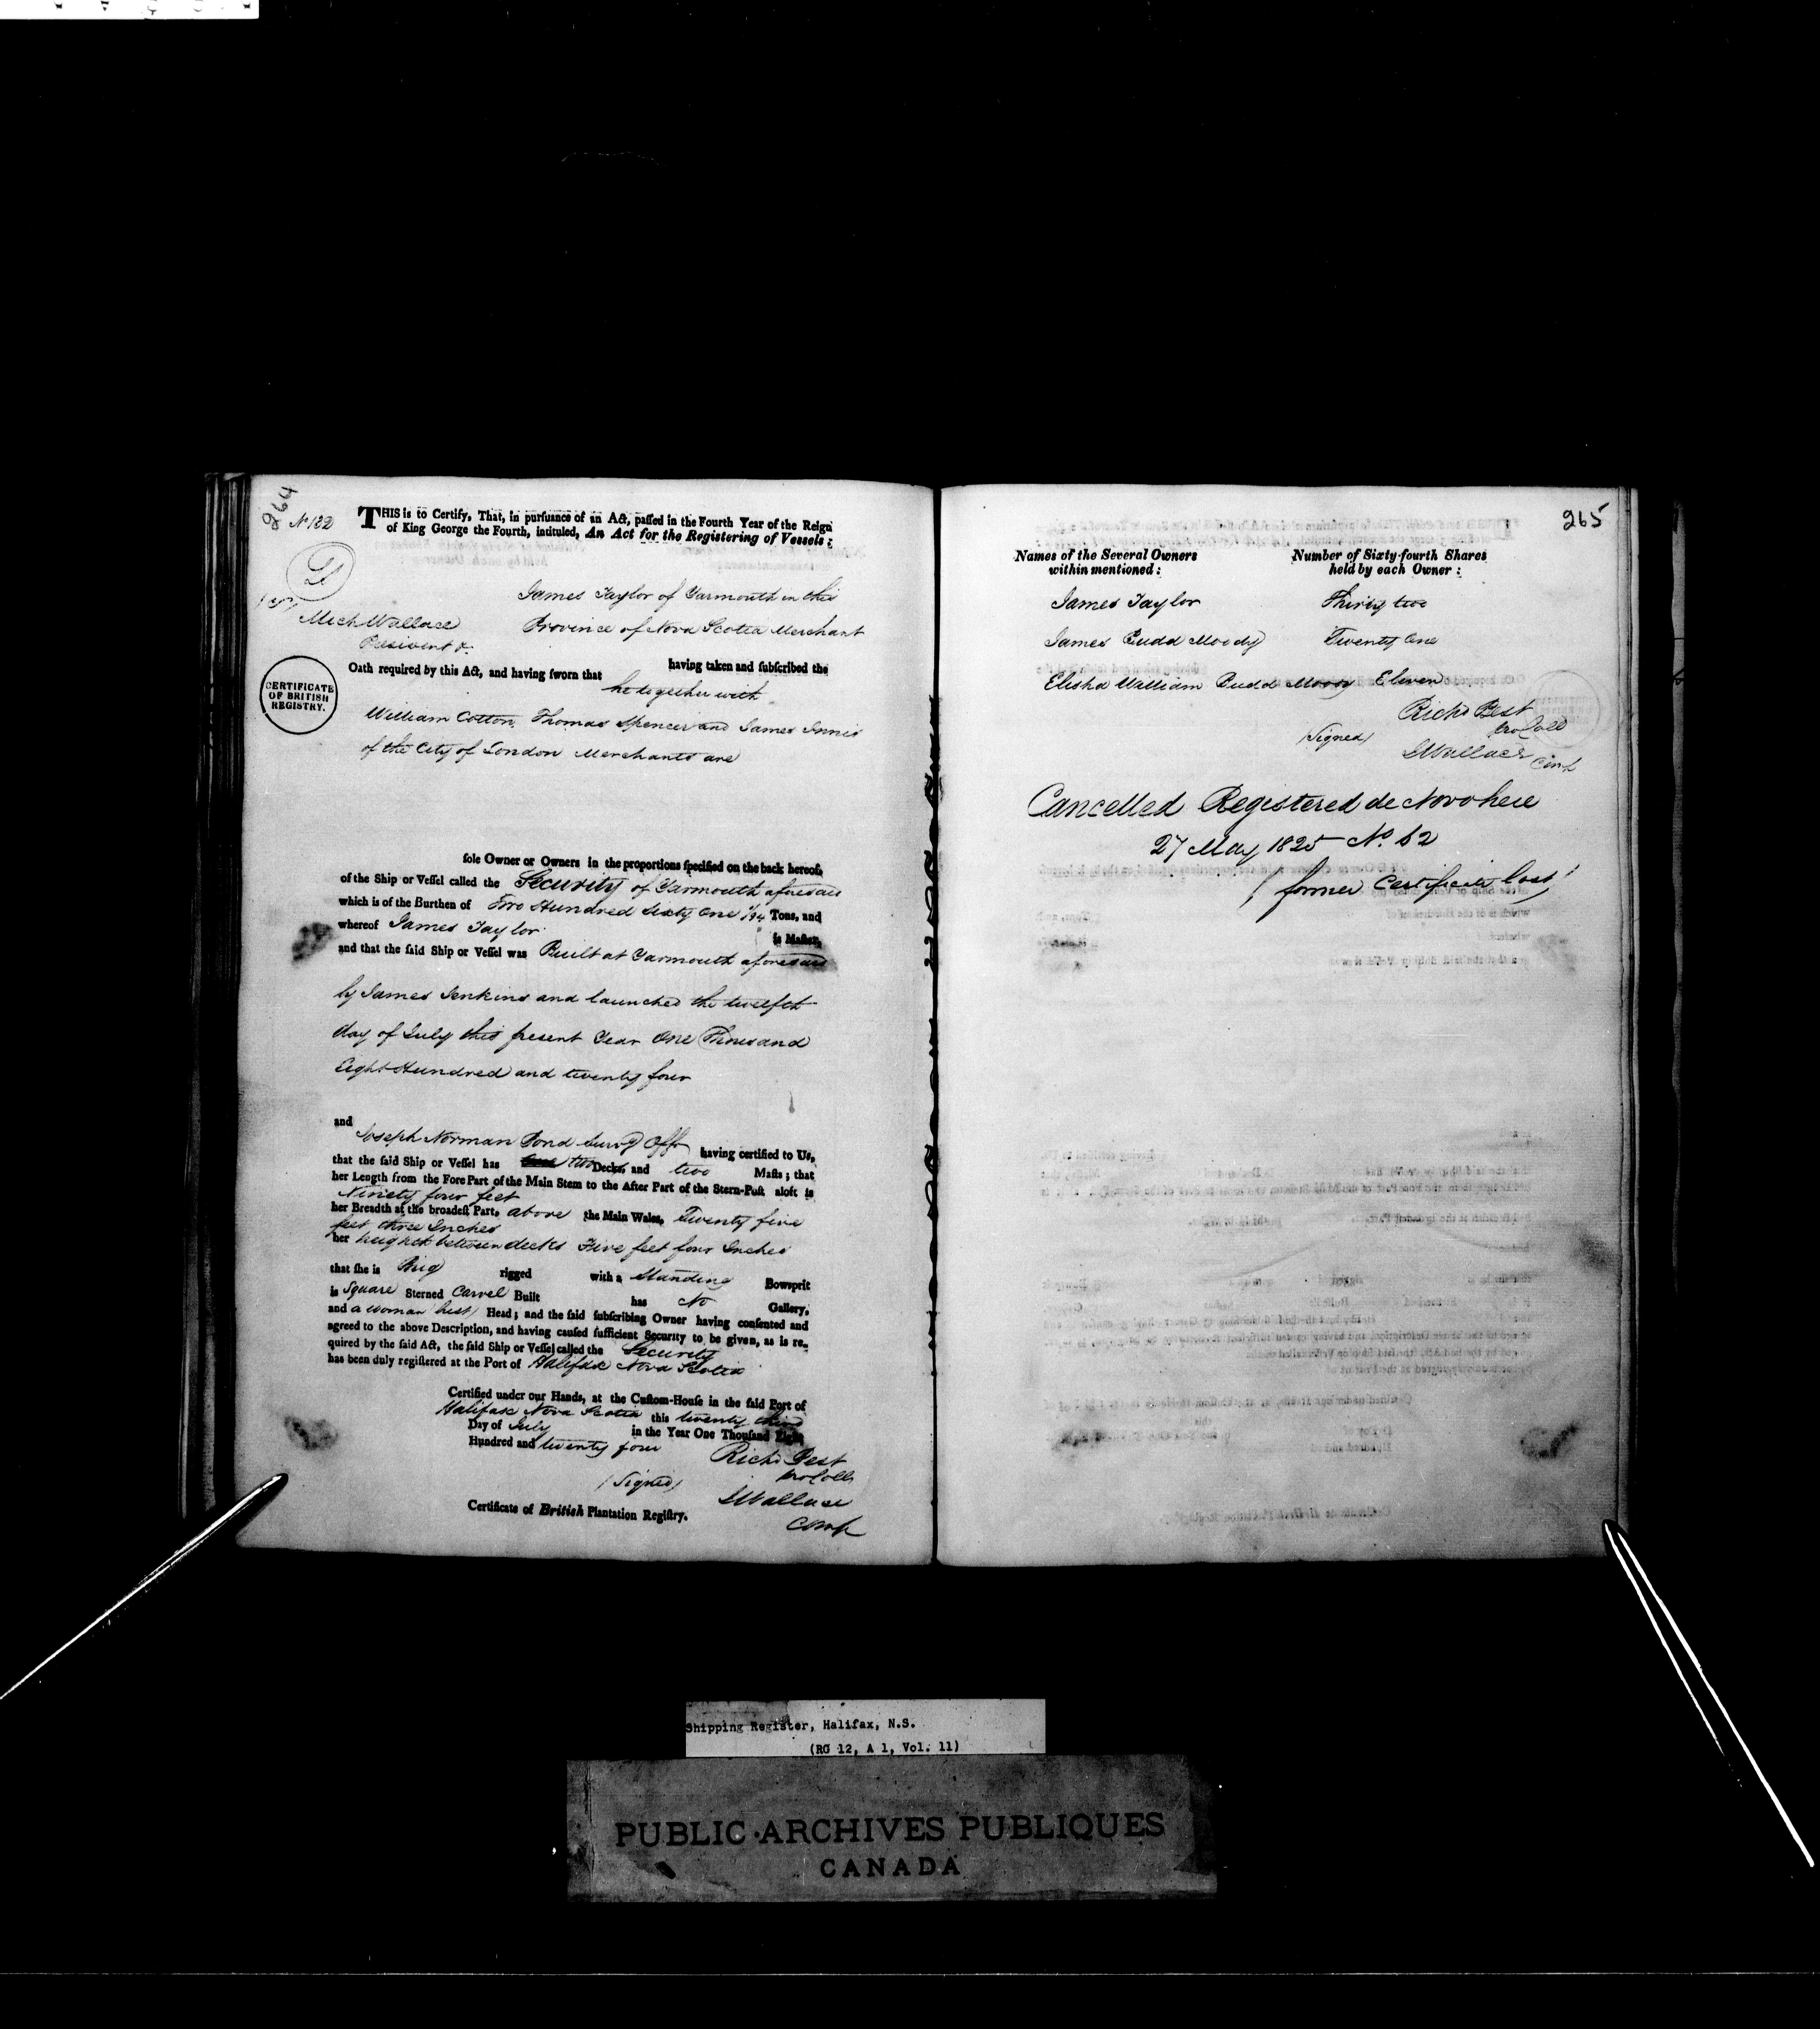 264
No 122
THIS is to Certify, That, in pursuance of an Act, passed in the Fourth Year of the Reign
of King George the Fourth, intituled, An Act for the Registering of Vessels;
James Taylor of Yarmouth in this
Mich Wallace
Province of Nova Scotia Merchant
President
having taken and subscribed the
Oath required by this Act, and having sworn that
he together with
CERTIFICATE
OF BRITISH
REGISTRY.
William Cotton, Thomas Spencer and James Innis
of the City of London Merchants are
sole Owner or Owners in the proportions specified on the back hereof,
of the Ship or Vessel called the Security of Yarmouth aforesaid
which is of the Burthen of Two Hundred Sixty One 1/94 Tons, and
whereof James Taylor is Master,
and that the said Ship or Vessel was Built at Yarmouth aforesaid
by James Jenkins and launched the twelfth
day of July this present Year One Thousand
Eight Hundred and twenty four
and
Joseph Norman Bond Survg Offr having certified to Us,
that the said Ship or Vessel has two Decks, and two Masts; that
her Length from the Fore Part of the Main Stem to the After Part of the Stern-Post aloft is
Ninety four feet
her Breadth at the broadest Part, above the Main Wales, Twenty five
feet three Inches
her height between decks Five feet four Inches
that she is Brig rigged with a Standing Bowsprit
is Square Sterned Carvel Built has No Gallery,
and a woman bust Head; and the said subscribing Owner having consented and
agreed to the above Description, and having caused sufficient Security to be given, as is re-
quired by the said Act, the said Ship or Vessel called the Security
has been duly registered at the Port of Halifax Nova Scotia
Certified under our Hands, at the Custom-House in the said Port of
Halifax Nova Scotia this twenty third
Day of July in the Year One Thousand Eight
Hundred and twenty four
Richd Best
pro Coll
(Signed)
Wallace
Comp
Certificate of British Plantation Registry.
265
Names of the Several Owners
within mentioned:
Number of Sixty-fourth Shares
held by each Owner:
James Taylor Thirty two
James Budd Moody Twenty One
Elisha William Budd Moody Eleven
Richd Best
pro Coll
(Signed)
Wallace
Comp
Cancelled Registered de Novo here
27 May 1825 No. 52
(former Certificate lost)
Shipping Register, Halifax, N.S.
(RG 12, A 1, Vol. 11)
PUBLIC ARCHIVES PUBLIQUES
CANADA